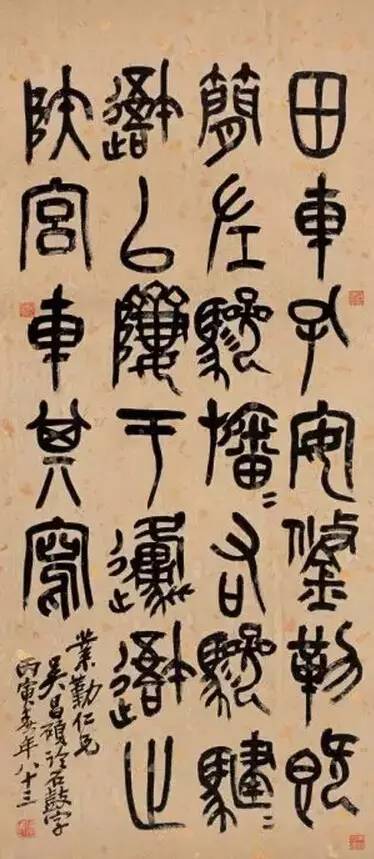 田車孔安鋚勒既
簡左驂旛〻右驂騝〻
䢔以隮于邍䢔止
陕宮車其寫
業勤仁兄
吳昌碩臨石鼓字
丙寅春年八十三